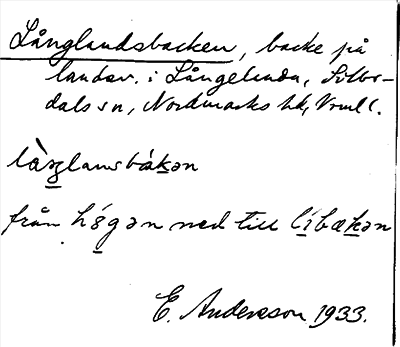 Långlandsbacken, backe på
landsv. i Långelanda, Silbo-
dals sn, Nordmarks hd, Vrml l.
làŋlansbákən
från hǿgən ned till líbækən
E. Andersson 1933.